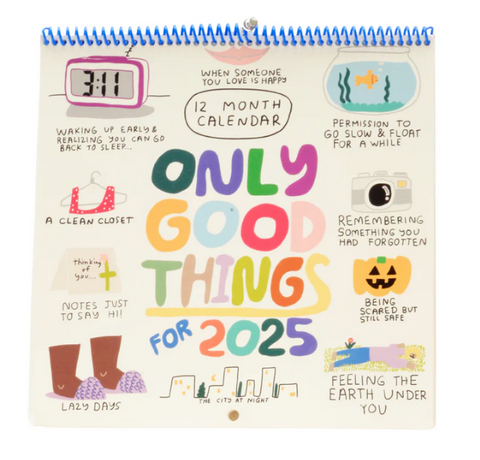 3:11
WHEN SOMEONE
YOU LOVE IS HAPPY
12 MONTH
CALENDAR
WAKING UP EARLY &
REALIZING YOU CAN GO
BACK TO SLEEP...
PERMISSION TO
GO SLOW & FLOAT
FOR A WHILE
ONLY
GOOD
THINGS
FOR 2025
A CLEAN CLOSET
REMEMBERING
SOMETHING YOU
HAD FORGOTTEN
thinking
of
you...
NOTES JUST
TO SAY HI!
BEING
SCARED BUT
STILL SAFE
LAZY DAYS
THE CITY AT NIGHT
FEELING THE
EARTH UNDER
YOU